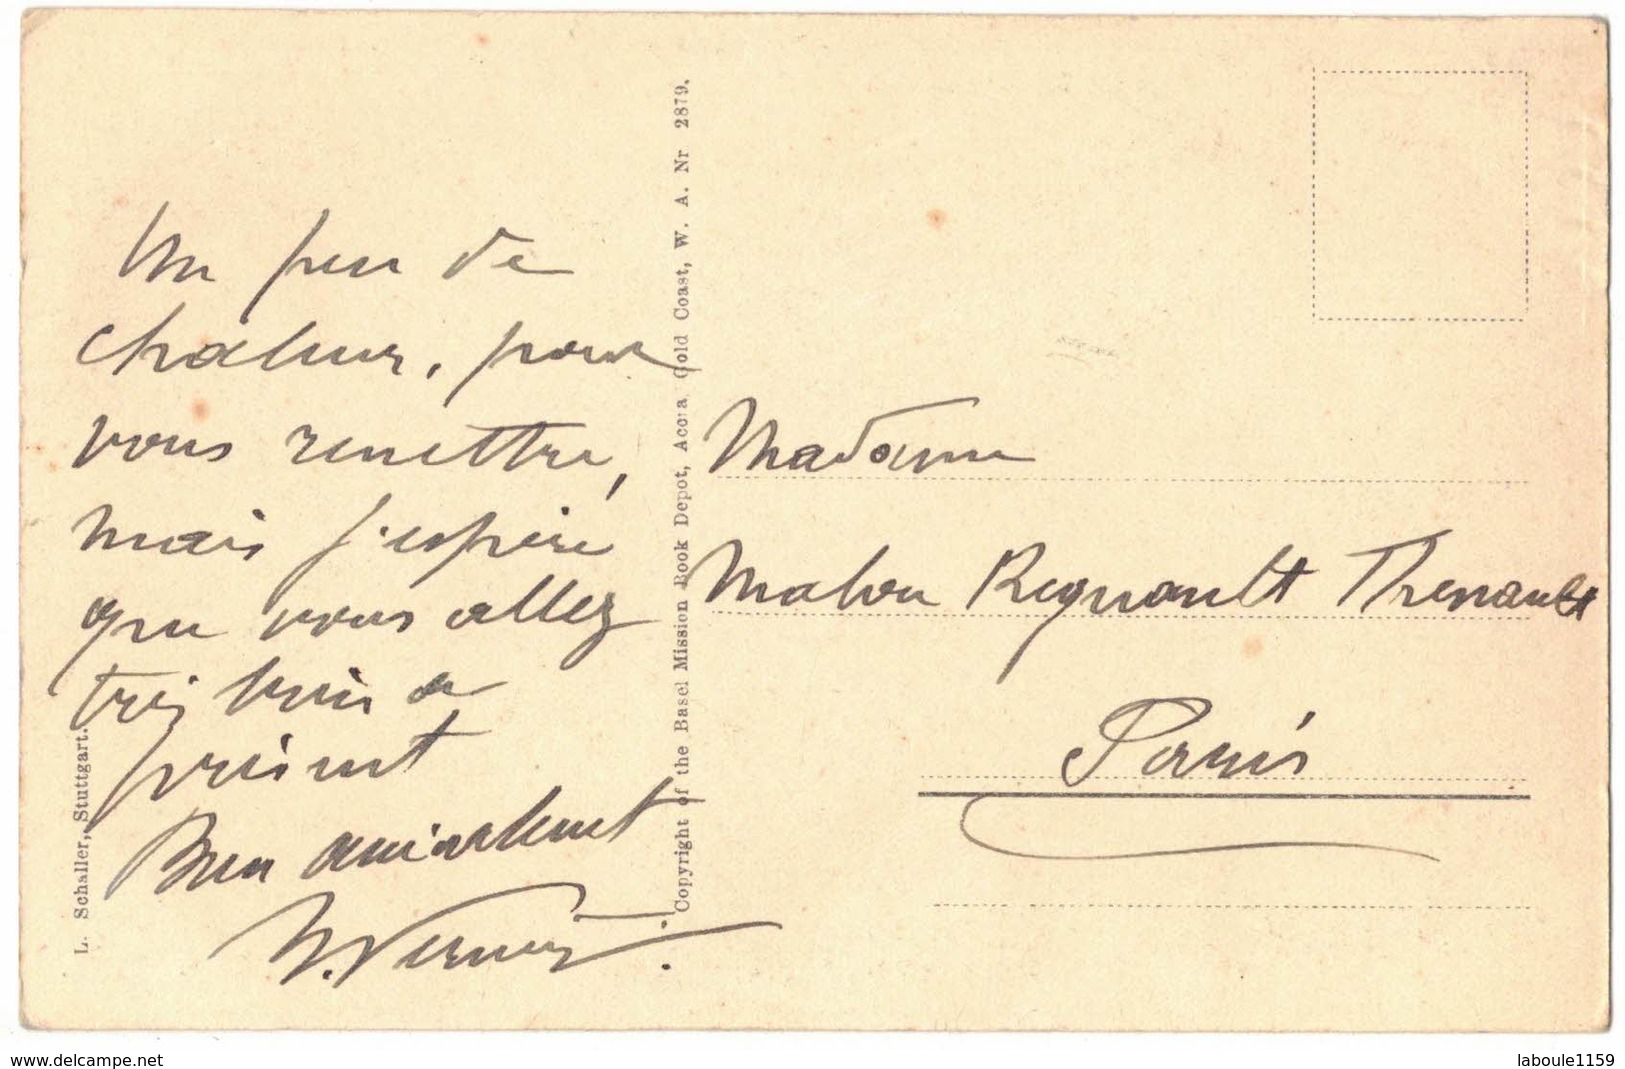 Un peu de
chaleur, pour
vous remettre,
mais j'espère
que vous allez
très bien a
présent
Bien amicalement
L. Schaller, Stuttgart.
Copyright of the Basel Mission Book Depot, Accra Gold Coast, W. A. Nr 2879.
Madame
Mahou Regnault Thenault
Paris
www.delcampe.net
laboule1159